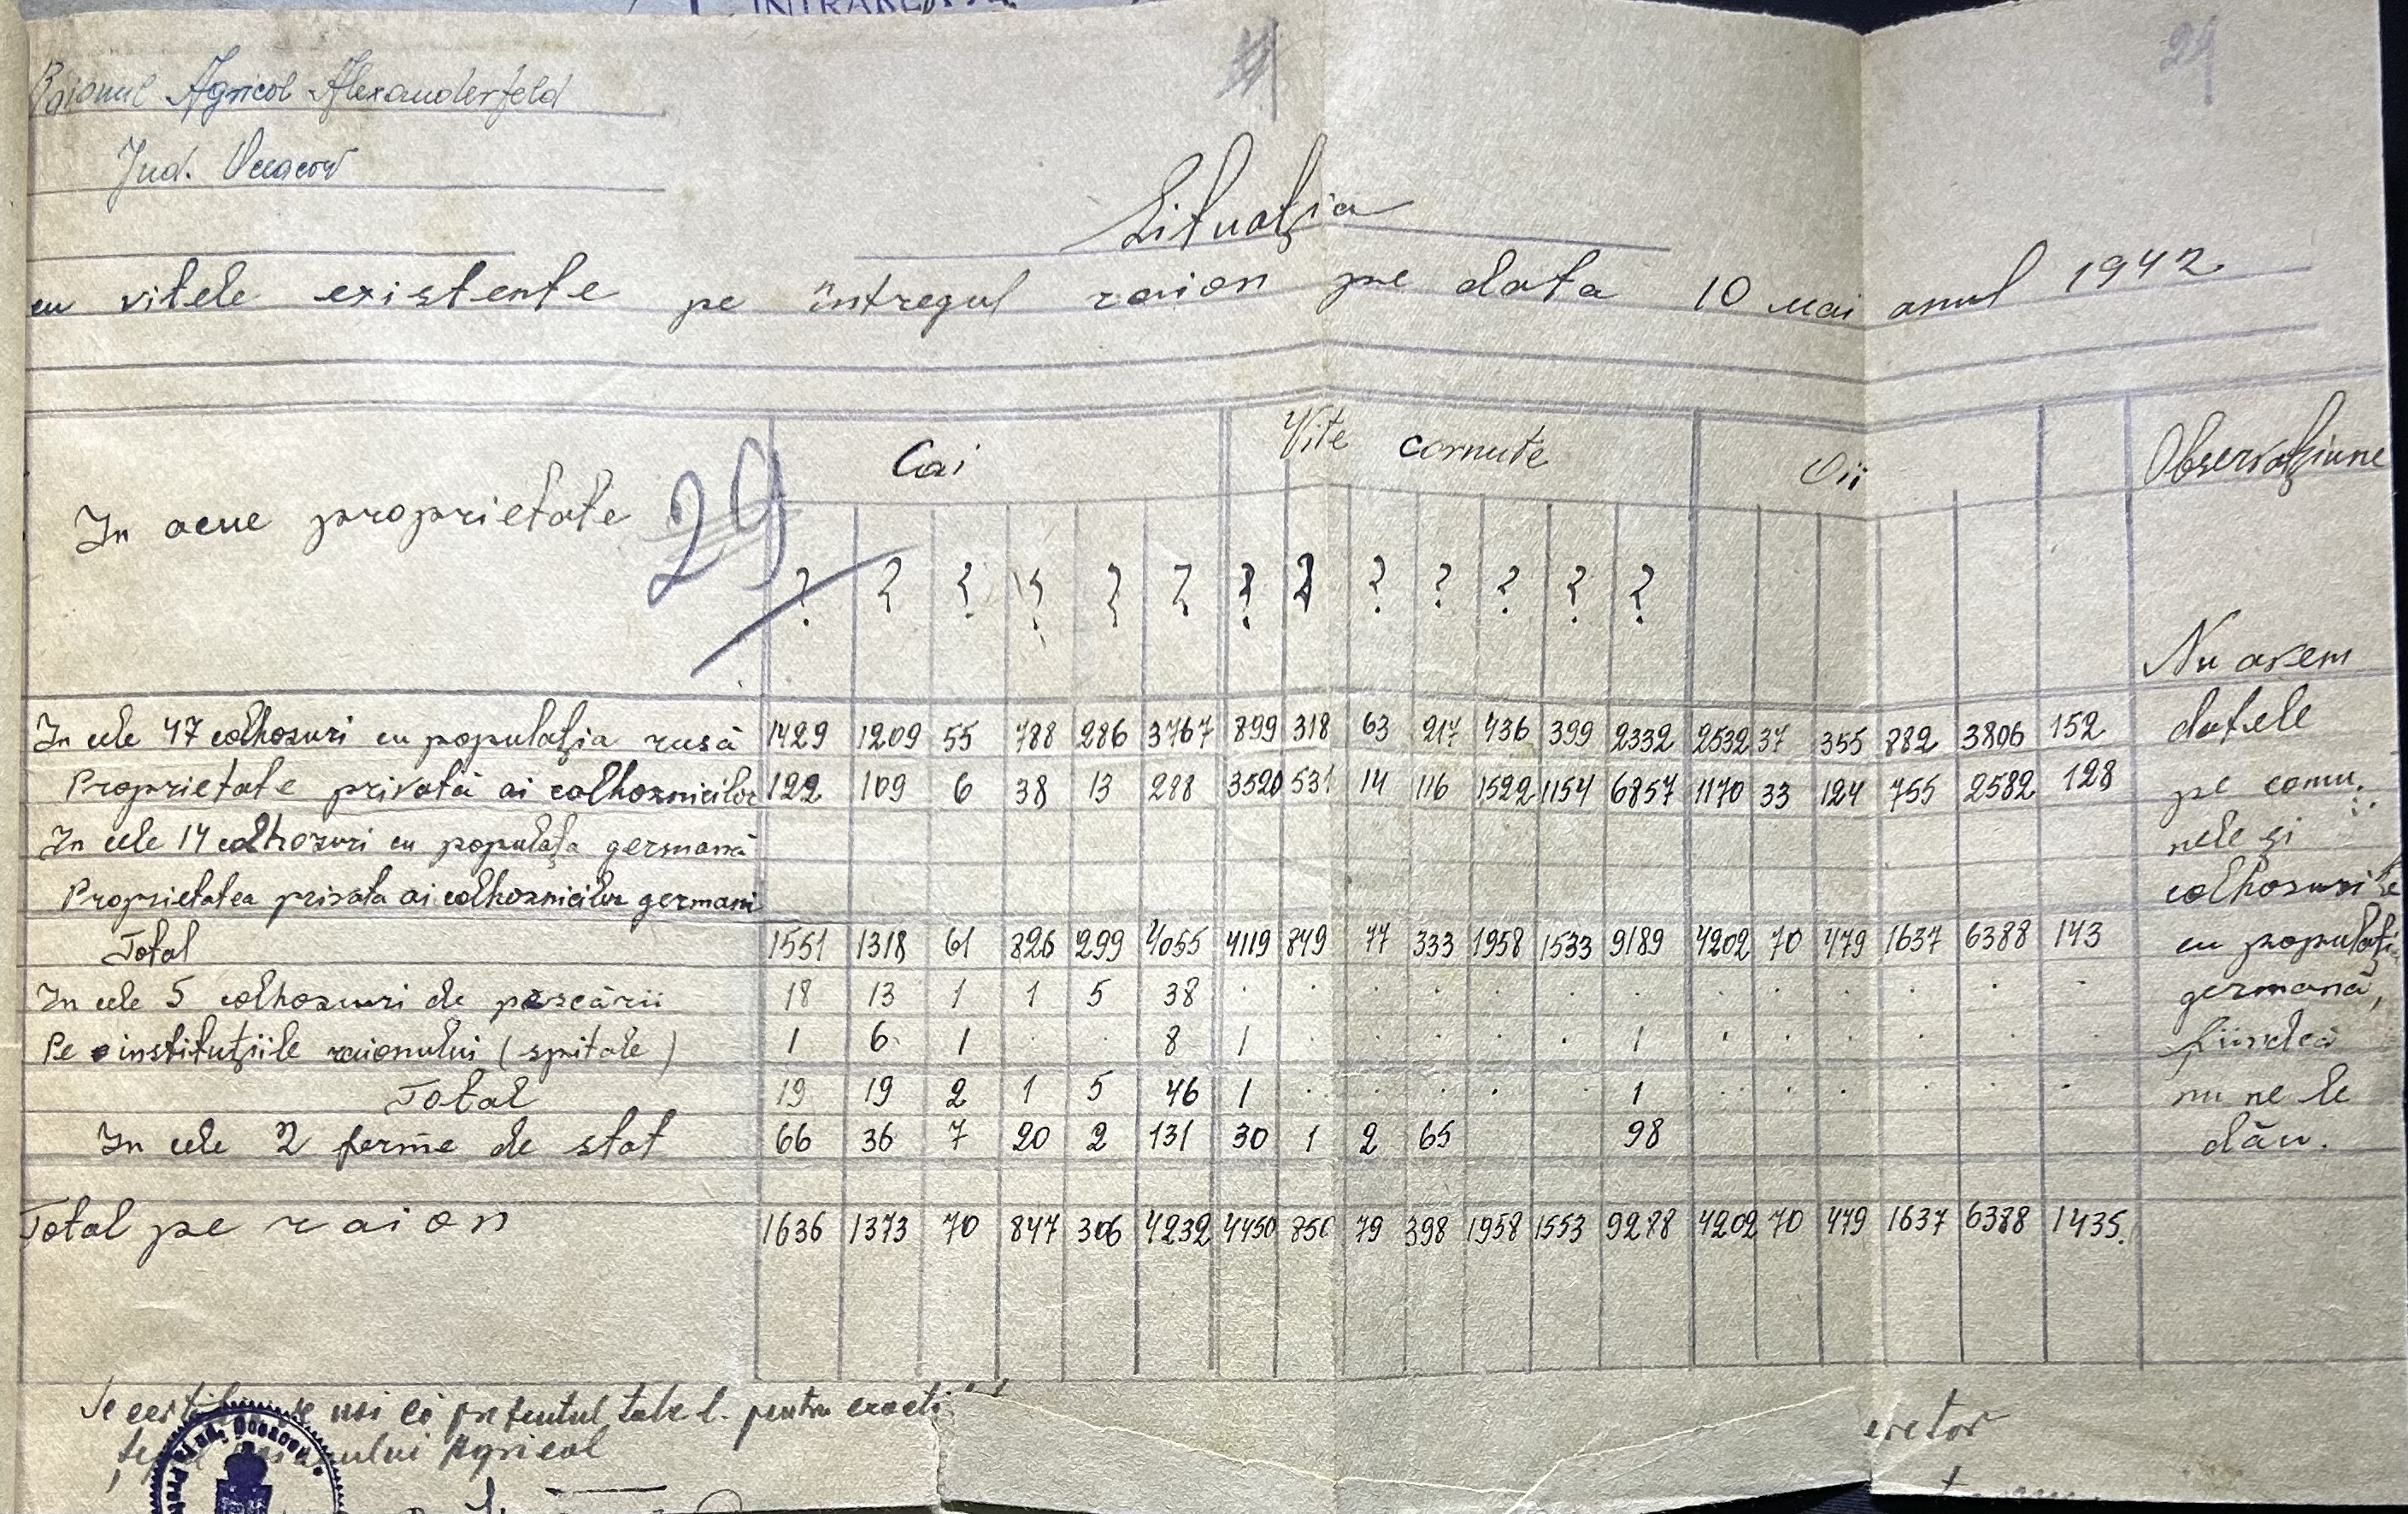 INTRARE
24
Raionul Agricol Alexanderfeld
Jud. Oceacow
Situaţia
cu vitele existente pe întregul raion pe data 10 mai anul 1942
In acue proprietate 29 Cai Vite cornute Oii Observaţiune
? ? ? ? ? ? ? ? ? ? ? ? ?
In cele 47 colhosuri cu populaţia rusă 1429 1209 55 788 286 3767 899 318 63 217 436 399 2332 2532 37 355 882 3806 152
Proprietate privată ai colhosnicilor 122 109 6 38 13 288 3520 531 14 116 1522 1154 6857 1170 33 124 755 2582 128
In cele 14 colhozuri cu populaţa germană
Proprietatea privata ai colhosnicilor germani
Total 1551 1318 61 826 299 4055 4119 849 77 333 1958 1533 9189 4202 70 479 1637 6388 143
In cele 5 colhosuri de pescării 18 13 1 1 5 38 . . . . . . . . . . . . .
Pe instituţiile raionului (spitale) 1 6 1 . . 8 1 . . . . . 1 . . . . . .
Total 19 19 2 1 5 46 1 . . . . . 1 . . . . . .
In cele 2 ferme de stat 66 36 7 20 2 131 30 1 2 65 98
Total pe raion 1636 1373 70 847 306 4232 4450 850 79 398 1958 1553 9288 4202 70 479 1637 6388 1435.
Nu avem
datele
pe comu.
nele şi
colhosurile
cu populaţia
germană,
fiindcă
nu ne le
dău.
Se de noi că prezentul tabel. pentru exacti
Agricol